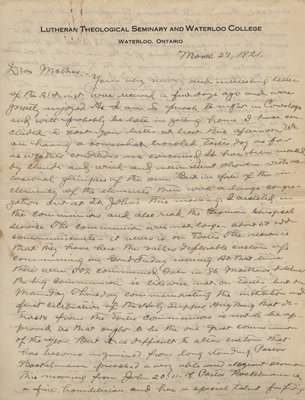 LUTHERAN THEOLOGICAL SEMINARY AND WATERLOO COLLEGE
WATERLOO, ONTARIO
March 27, 1921.
Dear Mother:- Your very newsy and interesting letter
of the 21st inst. was received a few days ago and were
greatly enjoyed. As I am to preach to night in
and will probably be late in getting home I have con-
cluded to start your letter at least this afternoon. We
are having a somewhat Easter day as far
as weather conditions are concerned. It has been marked
by clouds and wind and rain with
glimpses of the sun. But in spite of the in-
clemency of the elements there was a large congre-
gation out at St. John's this morning. I assisted in
the communion and also read the German liturgical
service. The communion was not large, about 65 or 70
communicants - it never is on Easter. The reason is
that they have here the rather deplorable custom of
communing on Good Friday evening. At that time
there were 502 communed. Over in St. Matthews, Kitchener,
the big communion is likewise not on Easter but on
Maundy Thursday commemorating the institution and
first celebration of the Holy Supper. Anything that de-
tracts from the Easter Communion is not to be ap-
proved as that ought to be the one great communion
of the year. But it is difficult to alter custom that
has become ingrained from long standing. Pastor
preached a very able and eloquent sermon
this morning from John 20:11-18. Pastor is
a fine and has a special talent for